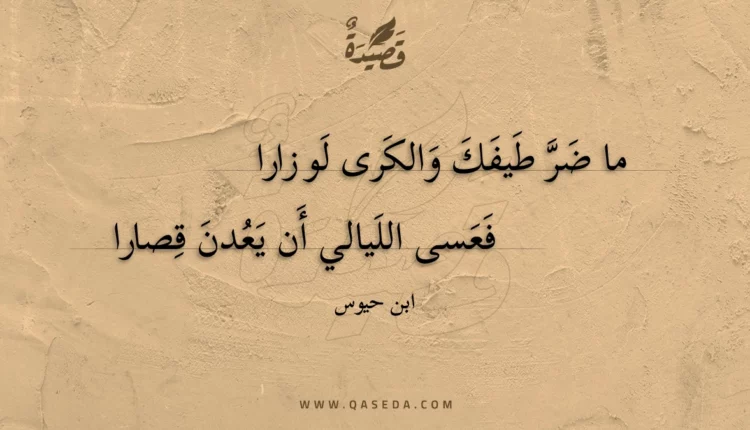 قَصِيدَةٌ
ما ضَرَّ طَيفَكَ وَالكَرى لَو زارا
فَعَسى اللَيالي أَن يَعُدنَ قِصارا
ابن حيوس
WWW.QASEDA.COM